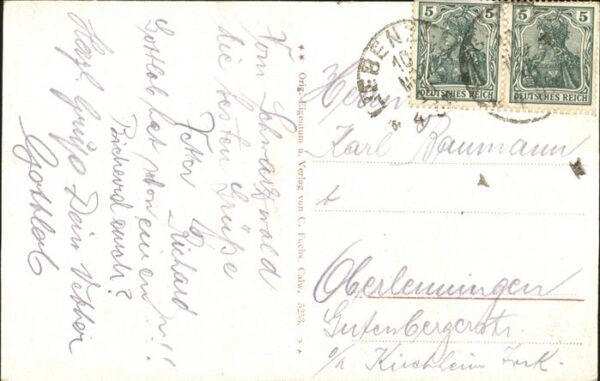 Vom Schwarzwald
die besten Grüße
Vetter Richard
Gottlob hat schon einen !!
Richard auch?
Herzl. Grüße Dein Vetter
Gottlob
** Orig.-Eigentum u. Verlag von C. Fuchs, Calw. 5253.
5 5
DEUTSCHES REICH DEUTSCHES REICH
LIEBENZ
Herrn
Karl Baumann
Oberlenningen
Gutenbergerstr.
Kirchheim